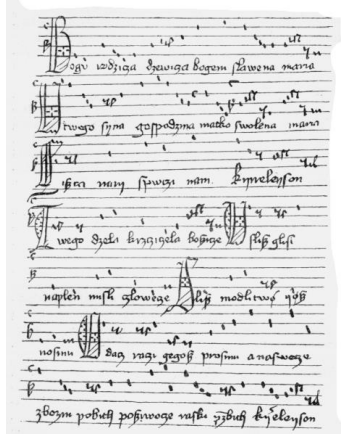 Bogu rodzicza dzewicza bogem slawena maria
U twego syna gospodzina matko swolena maria
nam spwczi nam. kyrieleyson
Twego dzela krzcziczela bozicze Uslisz glosi
naplen misli czlowecze Slisz modlitwo yosz
nosimi dacz raczi gegosz prosimi a naswecze
zbozni pobith posziwocze raski kyrieleyson